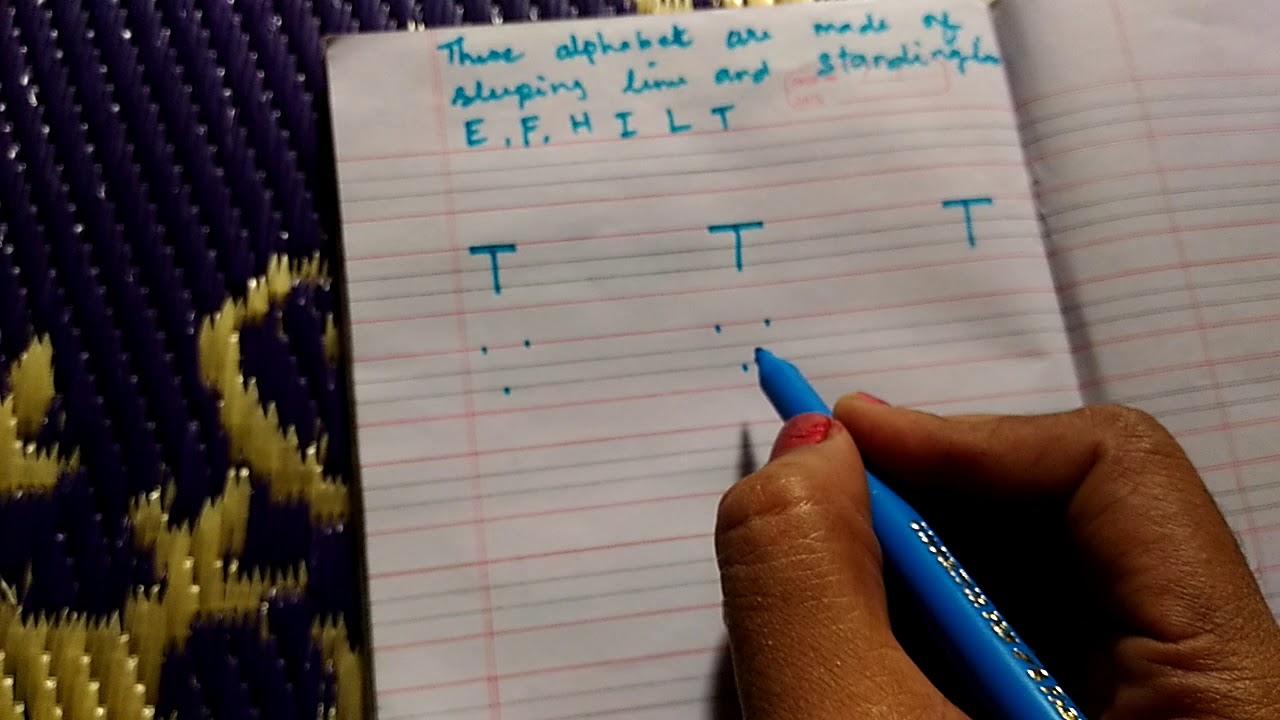 These alphabet are made of
sleeping line and standing
E, F, H I L T
T T T